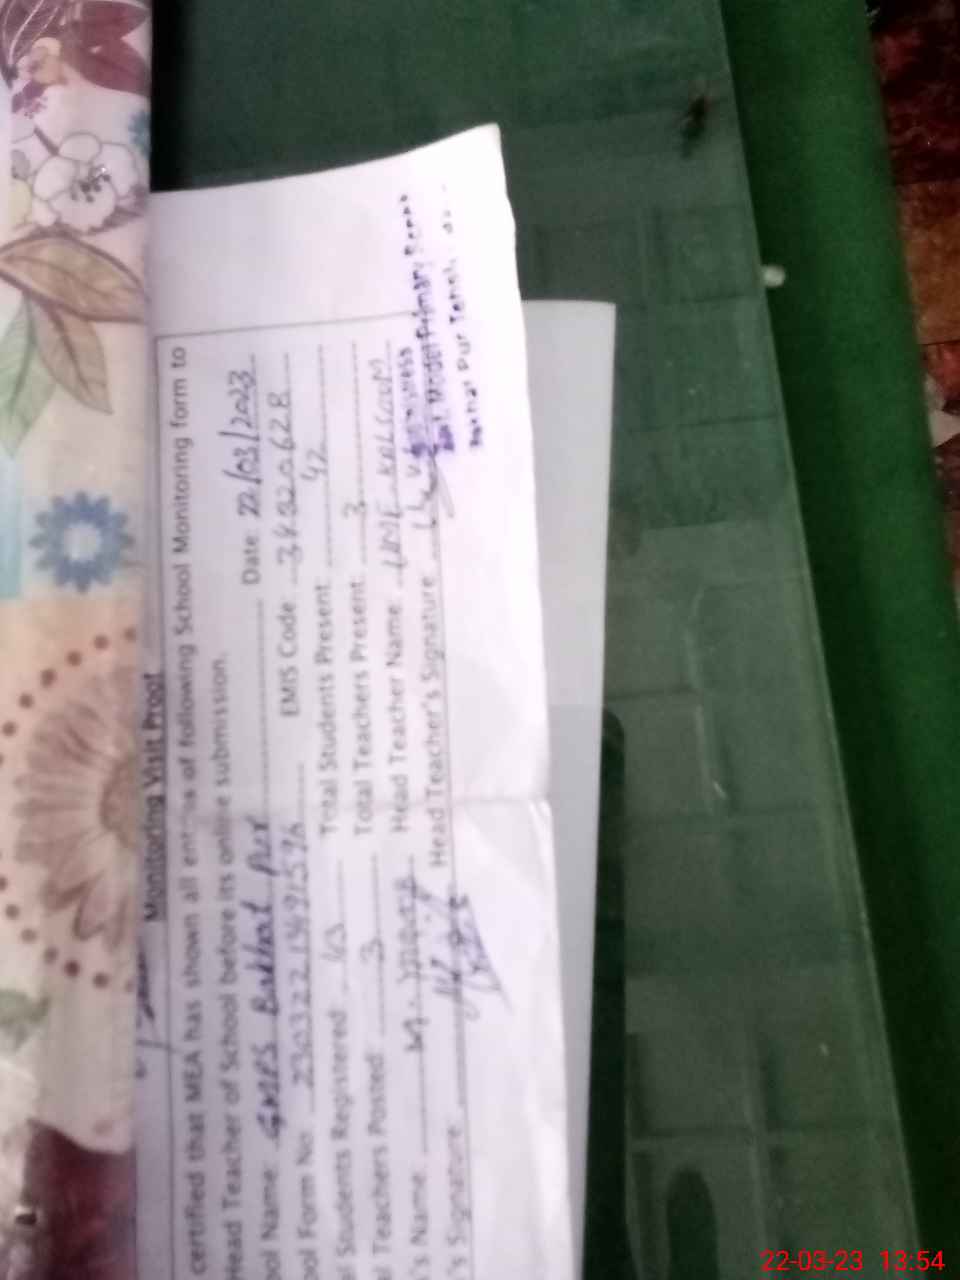 Monitoring Visit Proof
certified that MEA has shown all entries of following School Monitoring form to
ead Teacher of School before its online submission.
ool Name GMPS Bakhat Pur Date 22/03/2023
ool Form No. EMIS Code
l Students Registered 43 Total Students Present 42
Teachers Posted 3 Total Teachers Present 3
's Name M. Head Teacher Name
's Signature Head Teacher's Signature
Headmistress
Govt. Model Primary
Bakhat Pur Tehsil
22-03-23 13:54